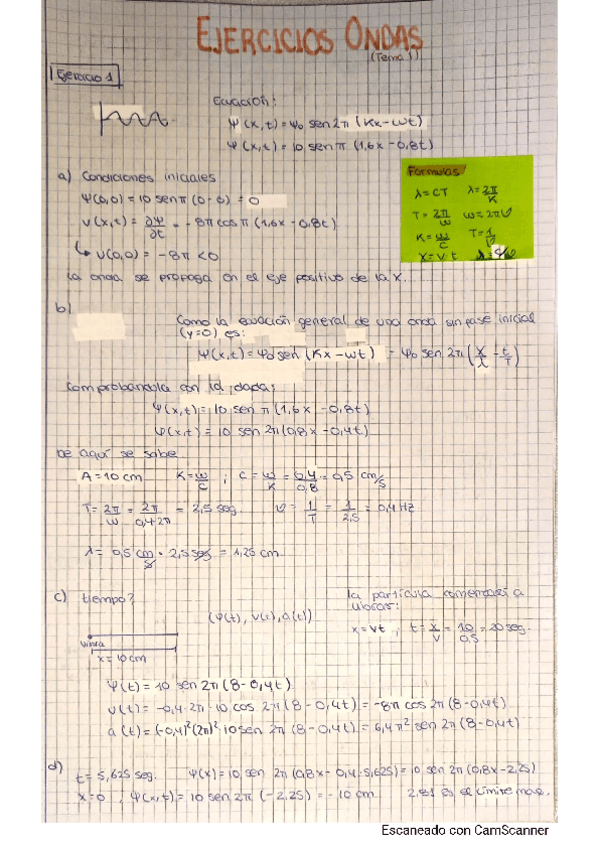 EJERCICIOS ONDAS
(Tema 1)
Ejercicio 1
Ecuación:
Ψ(x,t) = Ψ₀ sen 2π (Kx - ωt)
Ψ(x,t) = 10 sen π (1,6x - 0,8t)
a) Condiciones iniciales
Ψ(0,0) = 10 sen π (0 - 0) = 0
v(x,t) = ∂Ψ/∂t = -8π cos π (1,6x - 0,8t)
↳ v(0,0) = -8π < 0
La onda se propaga en el eje positivo de la X.
Formulas
λ = CT λ = 2π/K
T = 2π/ω ω = 2πν
K = ω/C T = 1/ν
x = v · t
b)
Como la ecuación general de una onda sin fase inicial
(y=0) es:
Ψ(x,t) = Ψ₀ sen (Kx - ωt) = Ψ₀ sen 2π (x/λ - t/T)
Comprobándola con la dada:
Ψ(x,t) = 10 sen π (1,6x - 0,8t)
Ψ(x,t) = 10 sen 2π (0,8x - 0,4t)
De aquí se sabe
A = 10 cm K = ω/C ; C = ω/K = 0,4/0,8 = 0,5 cm/s
T = 2π/ω = 2π/0,4·2π = 2,5 seg. ν = 1/T = 1/2,5 = 0,4 Hz
λ = 0,5 cm/s · 2,5 seg = 1,25 cm.
c) tiempo?
(Ψ(t), v(t), a(t))
la partícula comenzará a
vibrar:
x = vt ; t = x/v = 10/0,5 = 20 seg.
x = 10 cm
Ψ(t) = 10 sen 2π (8 - 0,4t)
v(t) = -0,4 · 2π · 10 cos 2π (8 - 0,4t) = -8π cos 2π (8 - 0,4t)
a(t) = (-0,4)² (2π)² · 10 sen 2π (8 - 0,4t) = 6,4π² sen 2π (8 - 0,4t)
d)
t = 5,625 seg. Ψ(x) = 10 sen 2π (0,8x - 0,4 · 5,625) = 10 sen 2π (0,8x - 2,25)
x = 0 ; Ψ(x,t) = 10 sen 2π (-2,25) = -10 cm. 2,81 es el límite
Escaneado con CamScanner